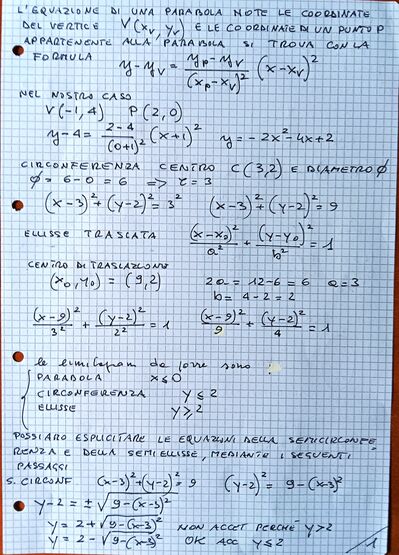 L'EQUAZIONE DI UNA PARABOLA NOTE LE COORDINATE
DEL VERTICE V(xv, yv) E LE COORDINATE DI UN PUNTO P
APPARTENENTE ALLA PARABOLA SI TROVA CON LA
FORMULA y-yv = (yp-yv)/(xp-xv)² (x-xv)²
NEL NOSTRO CASO
V(-1,4) P(2,0)
y-4 = (2-4)/(0+1)² (x+1)² y = -2x²-4x+2
CIRCONFERENZA CENTRO C(3,2) E DIAMETRO Ø
Ø = 6-0 = 6 => r = 3
(x-3)²+(y-2)² = 3² (x-3)²+(y-2)² = 9
ELLISSE TRASLATA (x-x₀)²/a² + (y-y₀)²/b² = 1
CENTRO DI TRASLAZIONE
(x₀,y₀) = (9,2) 2a = 12-6 = 6 a=3
b = 4-2 = 2
(x-9)²/3² + (y-2)²/2² = 1 (x-9)²/9 + (y-2)²/4 = 1
le limitazioni da porre sono :
PARABOLA x≤0
CIRCONFERENZA y≤2
ELLISSE y≥2
POSSIAMO ESPLICITARE LE EQUAZIONI DELLA SEMICIRCONFE
RENZA E DELLA SEMIELLISSE, MEDIANTE I SEGUENTI
PASSAGGI
S. CIRCONF (x-3)²+(y-2)² = 9 (y-2)² = 9-(x-3)²
y-2 = ±√9-(x-3)²
y = 2+√9-(x-3)² NON ACCET PERCHÉ y>2
y = 2-√9-(x-3)² OK ACC y≤2
1